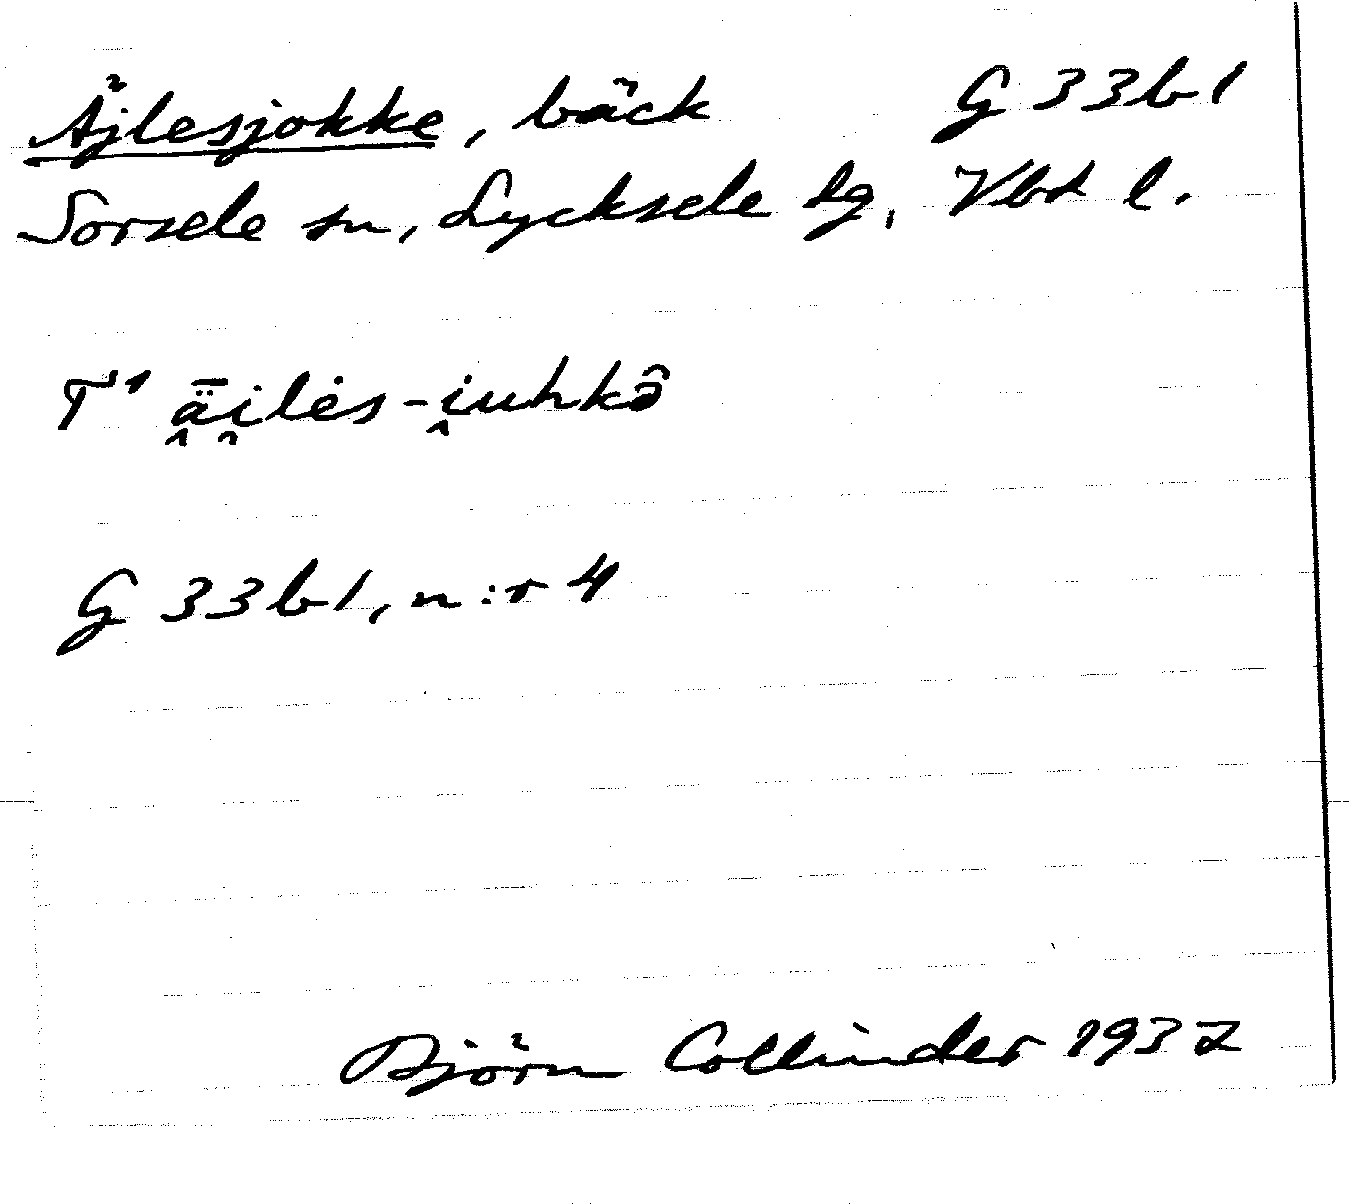 Äjlesjokke, bäck G 33b1
Sorsele sn, Lycksele lg, Vbt l.
T¹ ǟi̭lės-i̭uhkə̑
G 33b1, n:r 4
Björn Collinder 1937